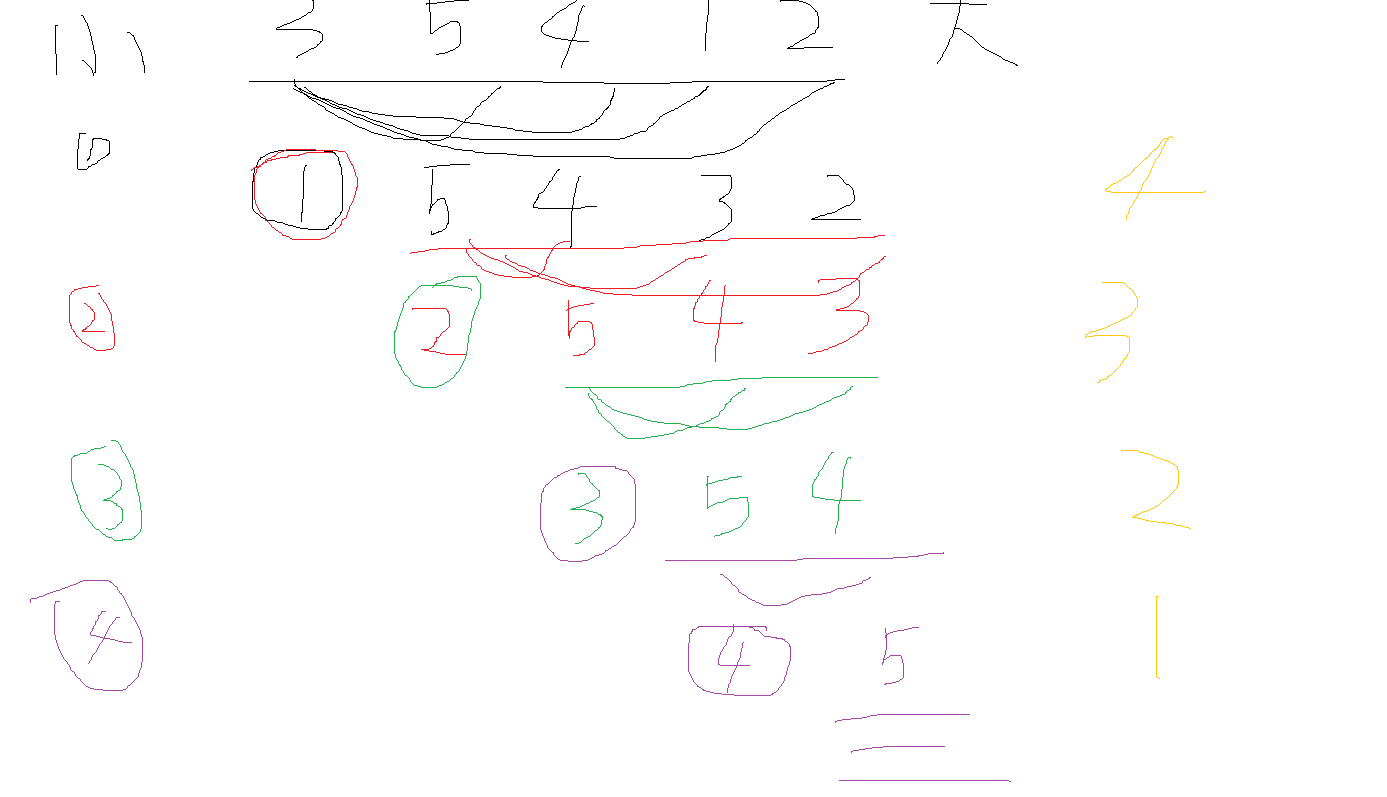 小 3 5 4 1 2 大
1 1 5 4 3 2 4
2 2 5 4 3 3
3 3 5 4 2
4 4 5 1